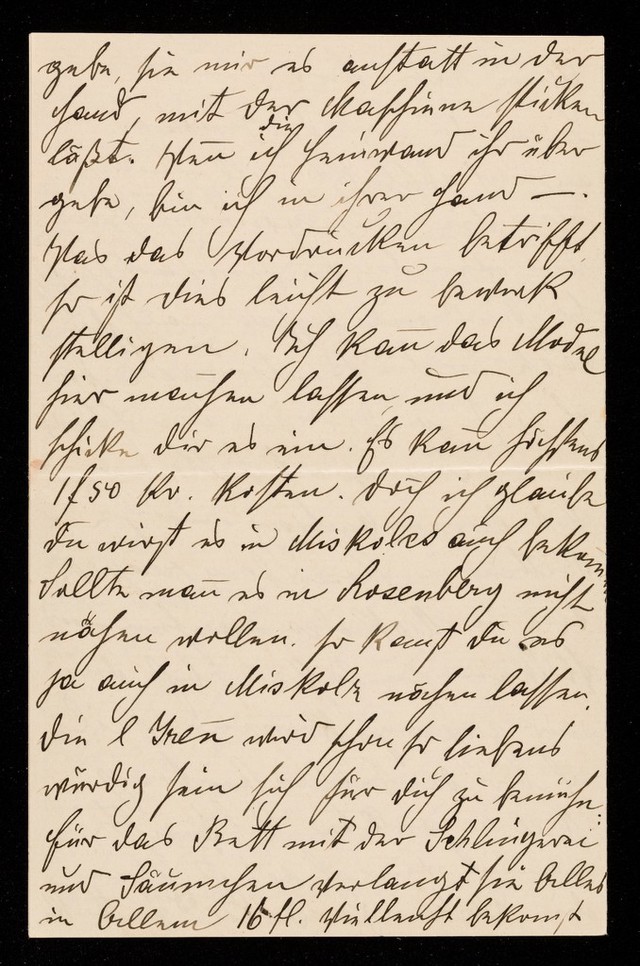 gebe, sie mir es anstatt in der
Hand, mit der Maschiene sticken
läßt. Wen̄ ich die Leinwand ihr über
gebe, bin ich in ihrer Hand —.
Was das Vordrucken betrifft,
so ist dies leicht zu bewerk
stelligen. Ich kan̄ das Model
hier machen lassen und ich
schicke dir es ein. Es kan̄ höchstens
1f 50 Kr. kosten. Doch ich glaube
du wirst es in Miskolcz auch bekom̄en
Sollte man̄ es in Rosenberg nicht
nähen wollen. so kan̄st du es
ja auch in Miskolz nähen lassen.
die l Iren̄ wird schon so liebens
würdig sein sich für dich zu bemühn
für das Bett mit der Schlingerei
und Säumchen verlangt sie Alles
in Allem 16 fl. Vielleicht bekomst